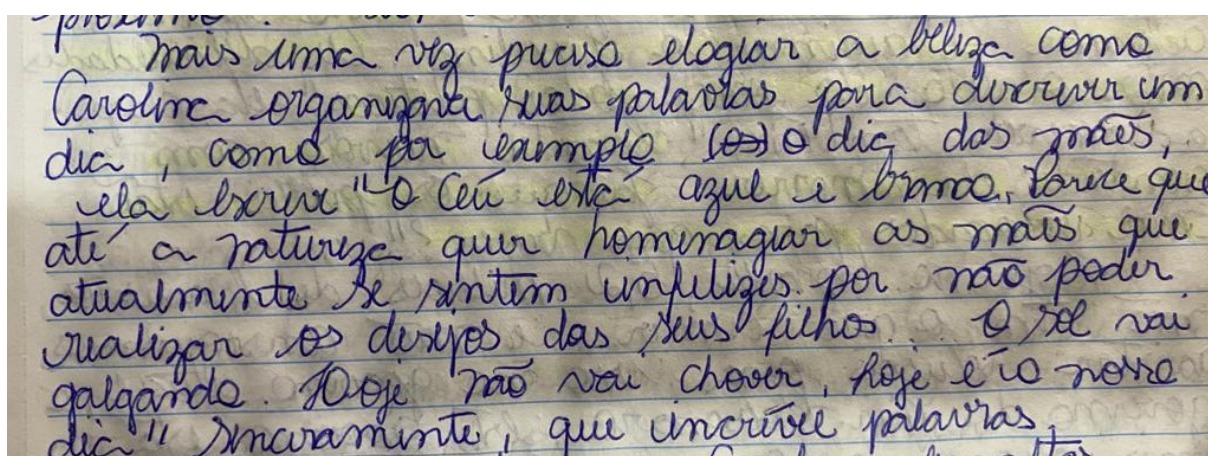 mais uma vez preciso elogiar a beleza como
Carolina organizava suas palavras para descrever um
dia, como por exemplo (os) o dia das mães,
ela escreve "O Céu está azul e branco. Parece que
até a natureza quer homenagear as mães que
atualmente se sentem infelizes por não poder
realizar os desejos das seus filhos... O sol vai
galgando. Hoje não vai chover, hoje é o nosso
dia" sinceramente, que incrivel palavras,